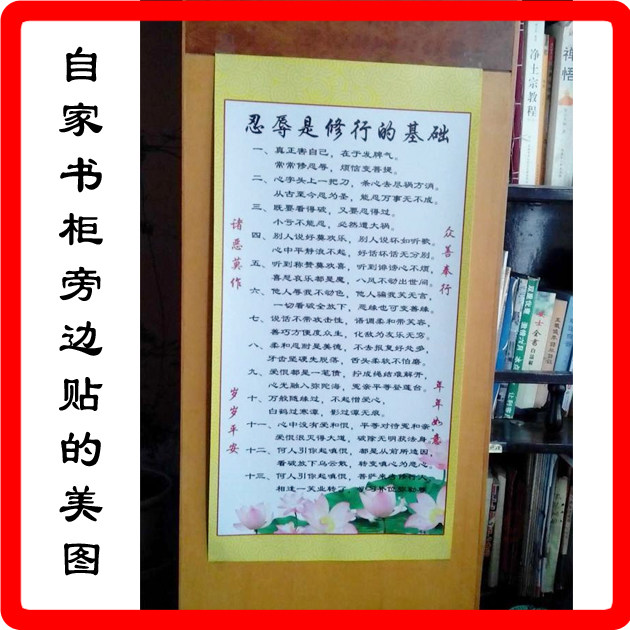 自家书柜旁边贴的美图
忍辱是修行的基础
一、真正害自己，在于发脾气。
常常修忍辱，烦恼变菩提。
二、心字头上一把刀，条心去尽祸方消。
从古至今忍为圣，能忍万事无不成。
三、既要看得破，又要忍得过。
小亏不能忍，必然遭大祸。
四、别人说好莫欢乐，别人说坏如听歌。
心中平静浪不起，好话坏话无分别。
五、听到称赞莫欢喜，听到诽谤心不烦，
喜怒哀乐都是魔，八风不动出世间。
六、他人辱我不动色，他人骗我笑无言，
一切看破全放下，恶缘也可变善缘。
七、说话不带攻击性，语调柔和带笑容，
善巧方便度众生，化敌为友乐无穷。
八、柔和忍耐是美德，不去报复好处多，
牙齿坚硬先脱落，舌头柔软不怕磨。
九、爱恨都是一笔债，拧成绳结难解开，
心光融入弥陀海，冤亲平等登莲台。
十、万般随缘过，不起憎爱心，
白鹤过寒潭，影过潭无痕。
十一、心中没有爱和恨，平等对待冤和亲
爱恨泯灭得大道，破除无明获法身。
十二、何人引你起嗔恨，都是从前所造因
看破放下乌云散，转变嗔心为慈心。
十三、何人引你起嗔恨，菩萨来考修行人
相逢一笑业转了
诸恶莫作
众善奉行
岁岁平安
年年如意
净土宗教程
禅悟